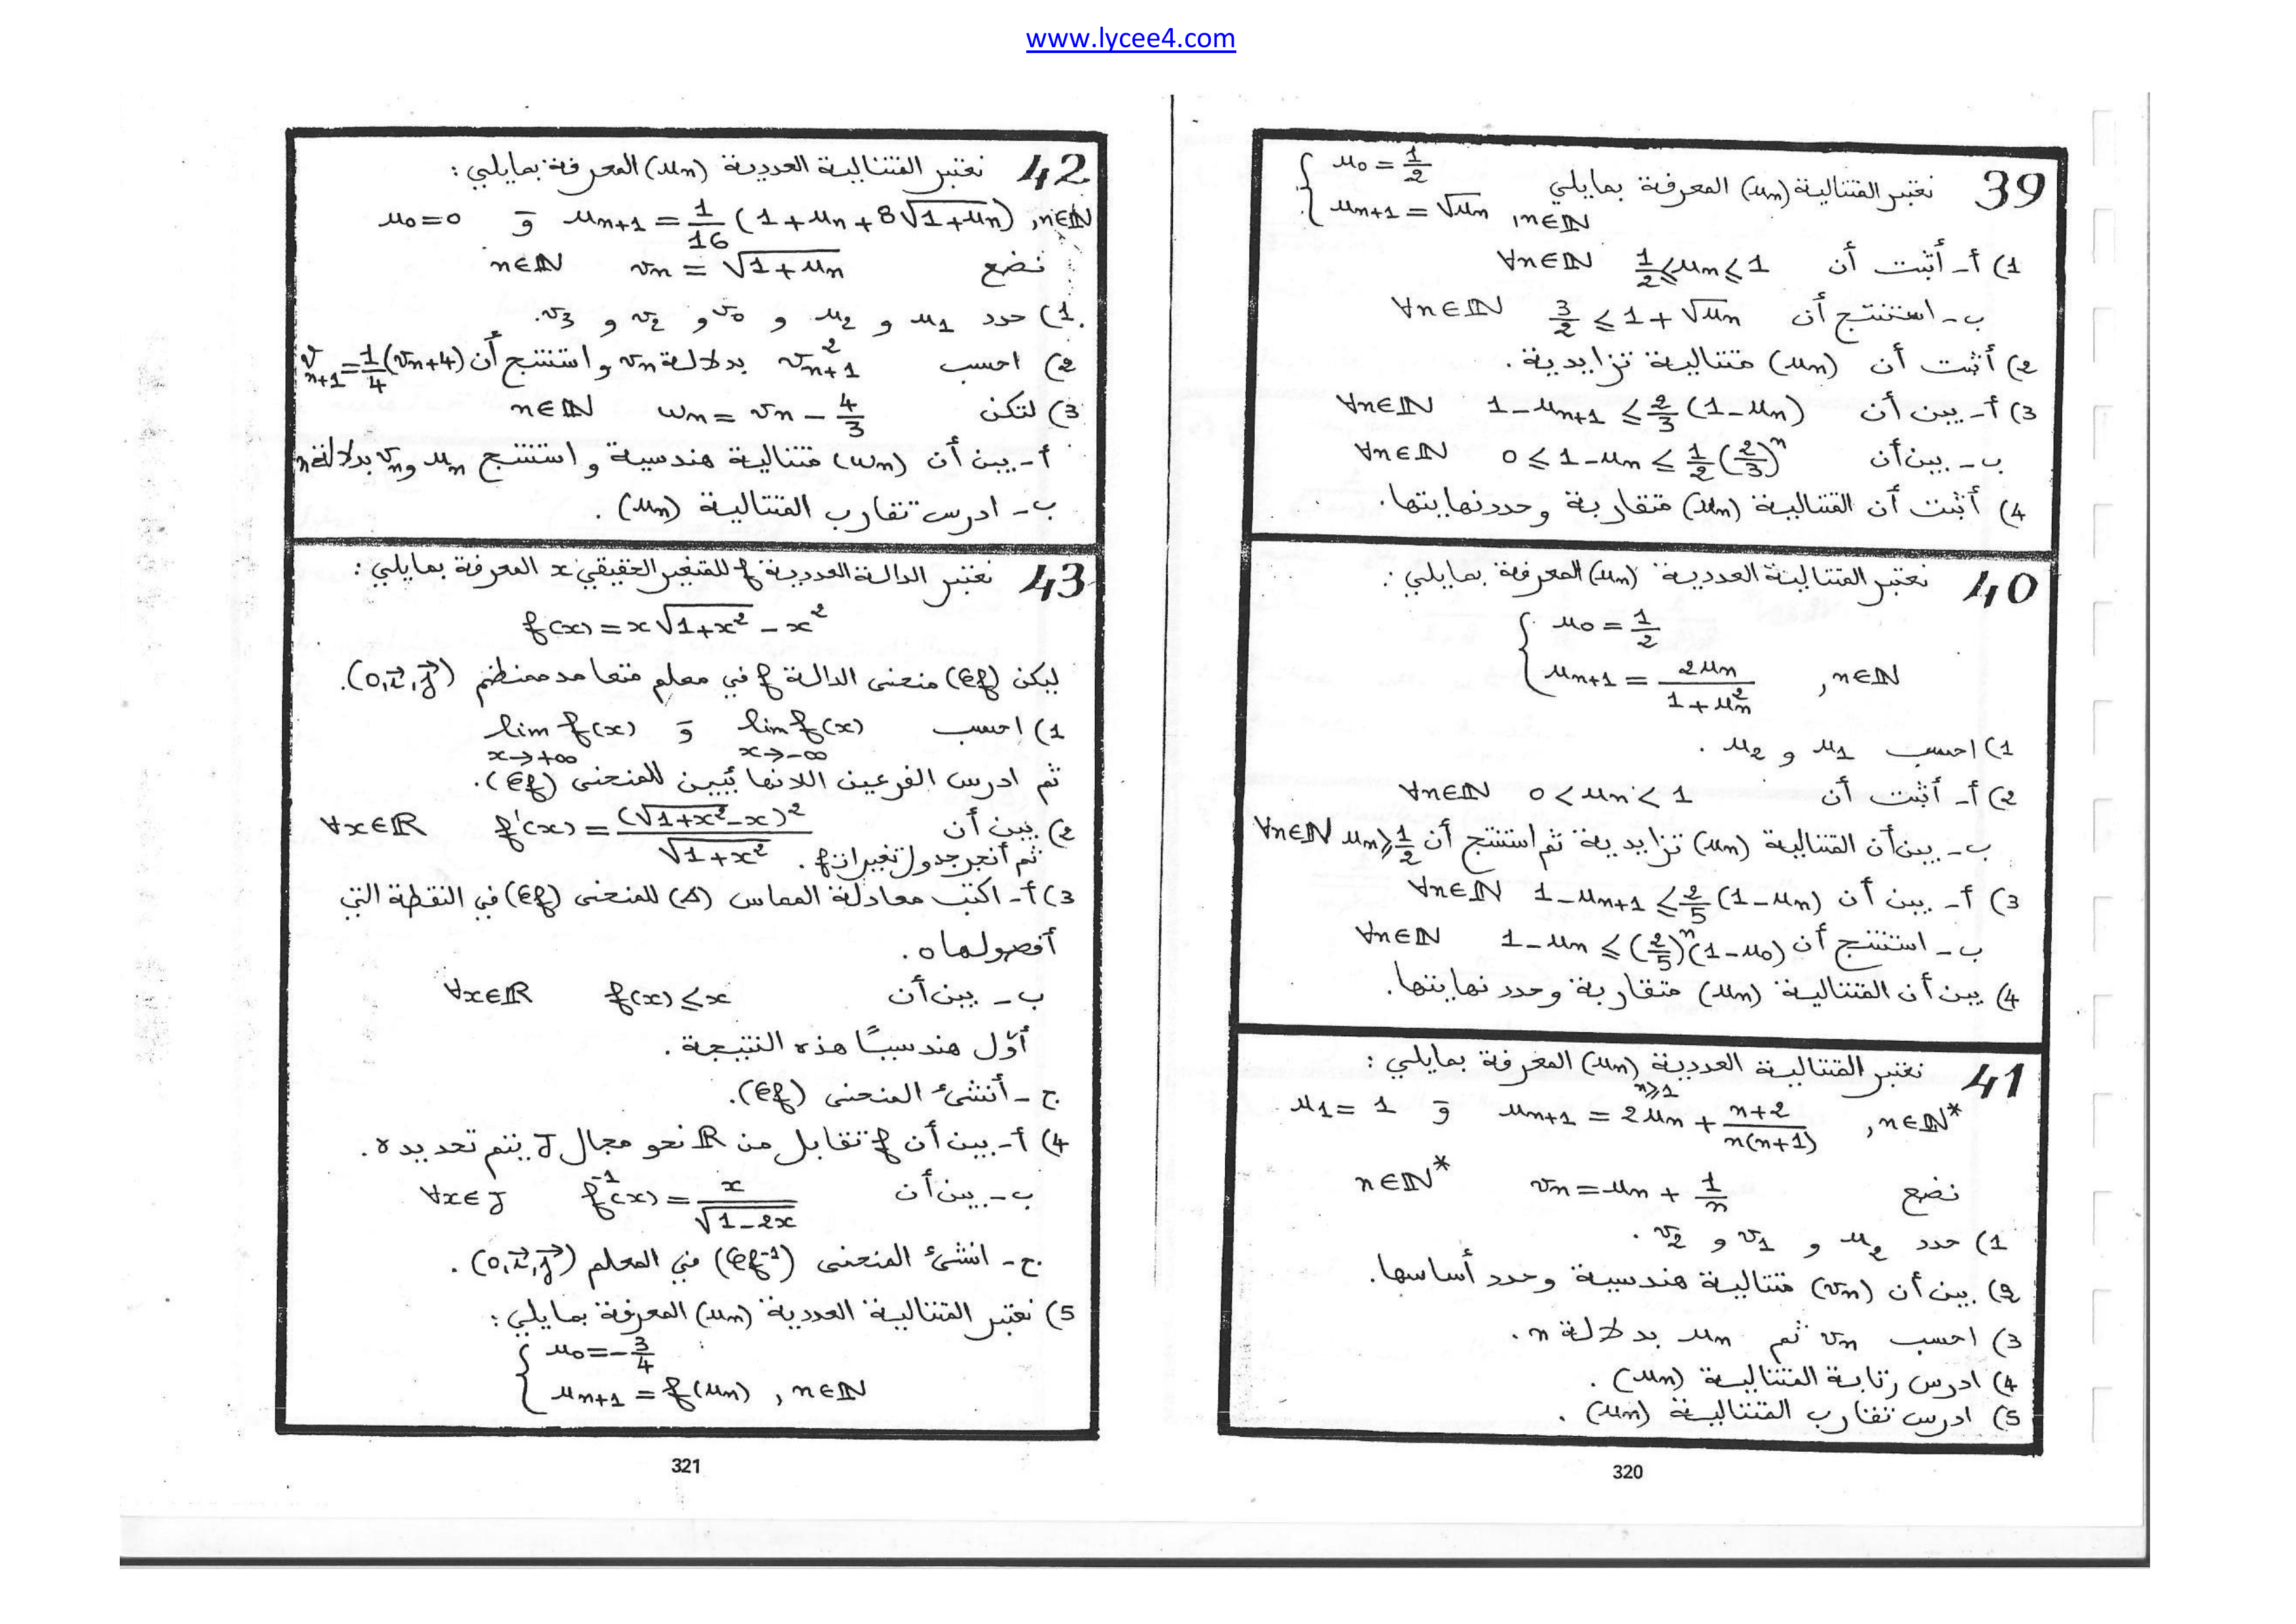 www.lycee4.com
39 نعتبر المتتالية (un) المعرفة بمايلي { u0 = 1/2
un+1 = √un , n∈ℕ
1) أ- أثبت أن 1/2 ≤ un ≤ 1 ∀n∈ℕ
ب- استنتج أن 3/2 ≤ 1 + √un ∀n∈ℕ
2) أثبت أن (un) متتالية تزايدية .
3) أ- بين أن 1 - un+1 ≤ 2/3 (1 - un) ∀n∈ℕ
ب- بين أن 0 ≤ 1 - un ≤ 1/2 (2/3)^n ∀n∈ℕ
4) أثبت أن المتتالية (un) متقاربة وحدد نهايتها.
40 نعتبر المتتالية العددية (un) المعرفة بمايلي :
{ u0 = 1/2
un+1 = 2un / (1 + un²) , n∈ℕ
1) احسب u1 و u2 .
2) أ- أثبت أن 0 < un < 1 ∀n∈ℕ
ب- بين أن المتتالية (un) تزايدية ثم استنتج أن un ≥ 1/2 ∀n∈ℕ
3) أ- بين أن 1 - un+1 ≤ 2/5 (1 - un) ∀n∈ℕ
ب- استنتج أن 1 - un ≤ (2/5)^n (1 - u0) ∀n∈ℕ
4) بين أن المتتالية (un) متقاربة وحدد نهايتها.
41 نعتبر المتتالية العددية (un)n≥1 المعرفة بمايلي :
u1 = 1 و un+1 = 2un + (n+2)/(n(n+1)) , n∈ℕ*
نضع vn = un + 1/n n∈ℕ*
1) حدد u2 و v1 و v2 .
2) بين أن (vn) متتالية هندسية وحدد أساسها.
3) احسب vn ثم un بدلالة n .
4) ادرس رتابة المتتالية (un) .
5) ادرس تقارب المتتالية (un) .
320
42 نعتبر المتتالية العددية (un) المعرفة بمايلي :
u0 = 0 و un+1 = 1/16 (1 + un + 8√(1+un)) , n∈ℕ
نضع vn = √(1+un) n∈ℕ
1) حدد u1 و u2 و v0 و v2 و v3.
2) احسب v²n+1 بدلالة vn و استنتج أن vn+1 = 1/4 (vn+4)
3) لتكن wn = vn - 4/3 n∈ℕ
أ- بين أن (wn) متتالية هندسية و استنتج un و vn بدلالة n
ب- ادرس تقارب المتتالية (un) .
43 نعتبر الدالة العددية f للمتغير الحقيقي x المعرفة بمايلي :
f(x) = x√(1+x²) - x²
ليكن (Cf) منحنى الدالة f في معلم متعامد ممنظم (o,i⃗,j⃗).
1) احسب lim f(x) x→-∞ و lim f(x) x→+∞
ثم ادرس الفرعين اللانهائيين للمنحنى (Cf).
2) بين أن f'(x) = (√(1+x²) - x)² / √(1+x²) ∀x∈ℝ
ثم أنجز جدول تغيرات f .
3) أ- اكتب معادلة المماس (Δ) للمنحنى (Cf) في النقطة التي
أفصولها 0 .
ب- بين أن f(x) ≤ x ∀x∈ℝ
أوّل هندسيًا هذه النتيجة .
ج- أنشئ المنحنى (Cf).
4) أ- بين أن f تقابل من ℝ نحو مجال J يتم تحديده .
ب- بين أن f⁻¹(x) = x/√(1-2x) ∀x∈J
ج- انشئ المنحنى (Cf⁻¹) في المعلم (o,i⃗,j⃗) .
5) نعتبر المتتالية العددية (un) المعرفة بمايلي :
{ u0 = -3/4
un+1 = f(un) , n∈ℕ
321